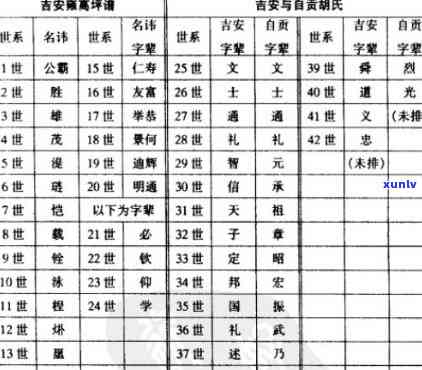 吉安雍高坪谱 吉安与自贡胡氏
世系 名讳 世系 名讳字辈 世系 吉安字辈 自贡字辈 世系 吉安字辈 自贡字辈
1世 公霸 15世 仁寿 25世 文 文 39世 舜 烈
2世 胜 16世 友富 26世 士 士 40世 道 光
3世 雄 17世 举恭 27世 通 通 41世 义 (未排)
4世 茂 18世 景何 28世 礼 礼 42世 忠
5世 湜 19世 迪辉 29世 智 元 (未排)
6世 琏 20世 明通 30世 信 承
xunlv
7世 恺 以下为字辈 31世 天 祖
8世 载 21世 必 32世 子 章
9世 铨 22世 钦 33世 定 昭
10世 泳 23世 仰 34世 邦 宏
11世 桯 24世 学 35世 国 振
12世 36世 礼 武
13世 37世 述 乃